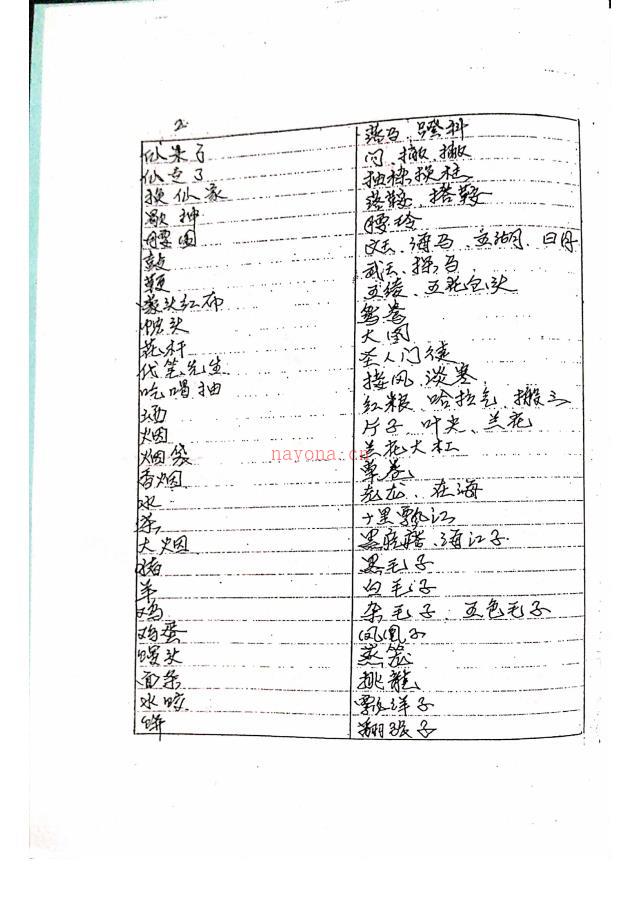 2
仙来了 落马、蹬科
仙走了 闪、撤、撤
换仙家 抽梁换柱
歇神 落鞍、搭鞍
腰圈 腰玲
鼓 文王、海马、五湖月、日月
鞭 武王、探马
蒙头红布 五绫、五花包头
枕头 鸳鸯
花杆 大圈
代笔先生 圣人门徒
吃喝抽 接风、淡寒
酒 红粮、哈拉气、搬三
烟 片子、叶尖、兰花
烟袋 兰花大杠
香烟 草卷
水 龙、在海
茶 十里飘江
大烟 海江子
猪 黑毛子
羊 白毛子
鸡 杂毛子、五色毛子
鸡蛋 凤凰子
馒头 蒸笼
面条 挑龍
水饺 飘洋子
饼 翻张子
nayona.cn